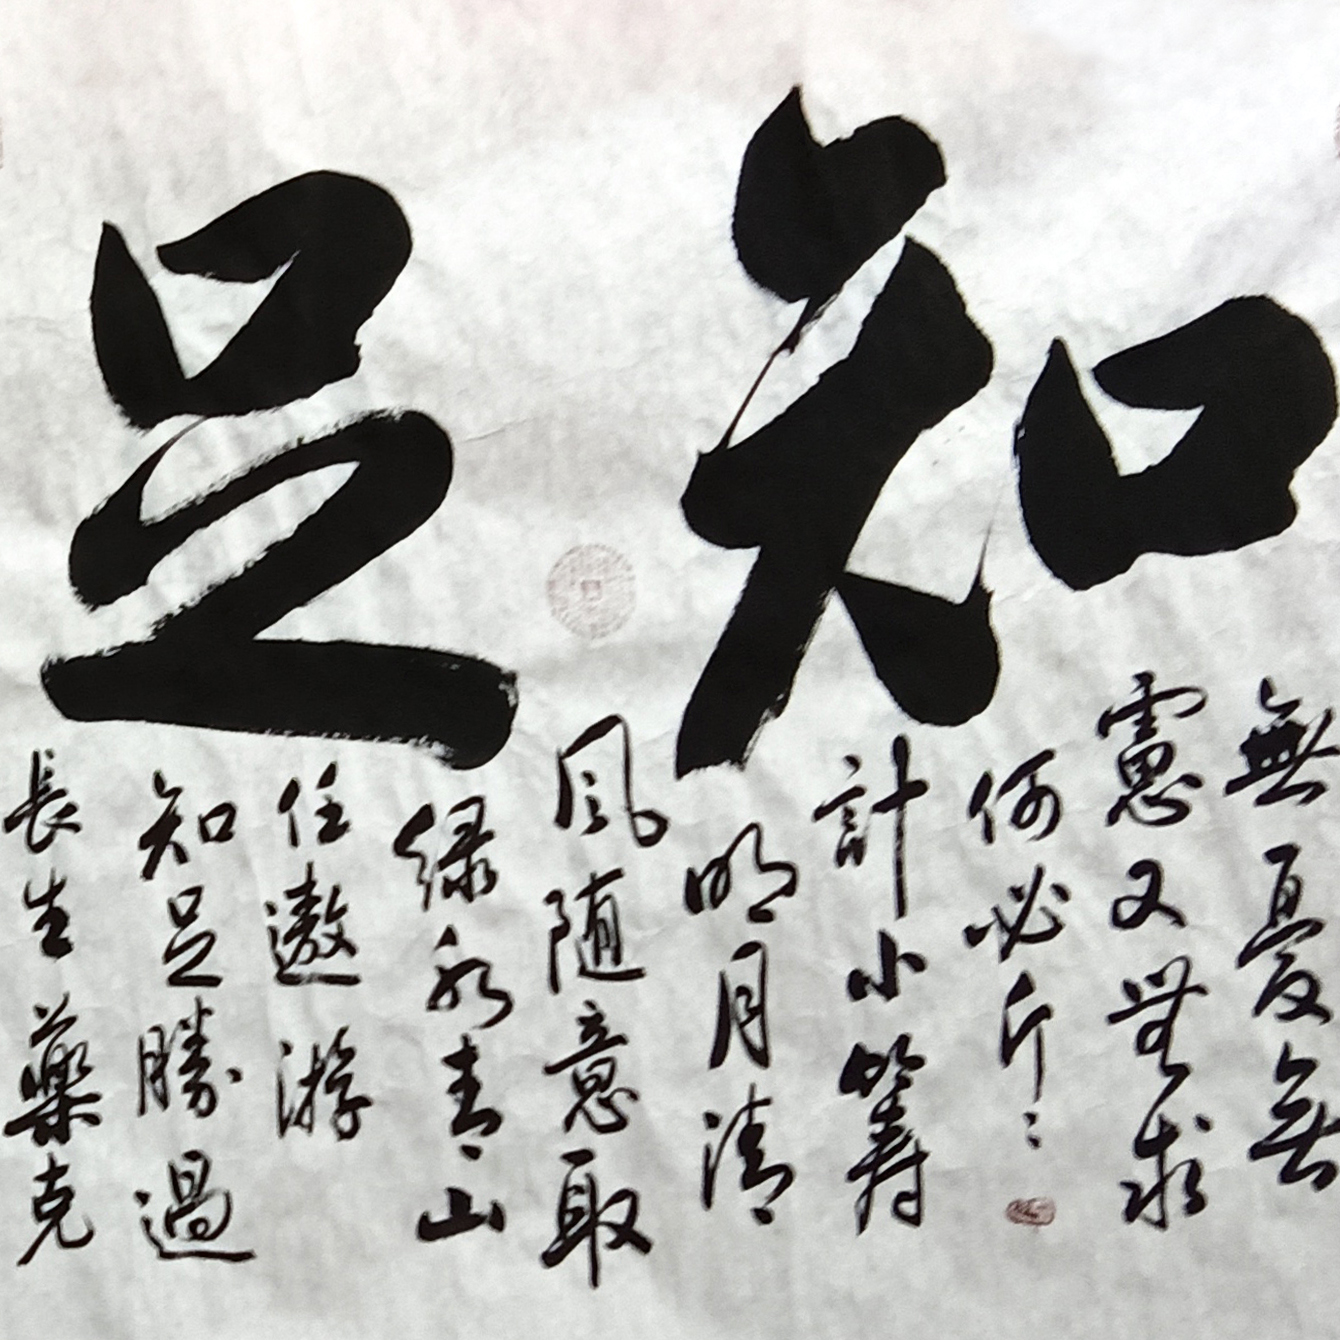 知足
無憂無
慮又無求
何必斤〻
計小籌
明月清
風随意取
绿水青山
任遨游
知足勝過
長生藥克